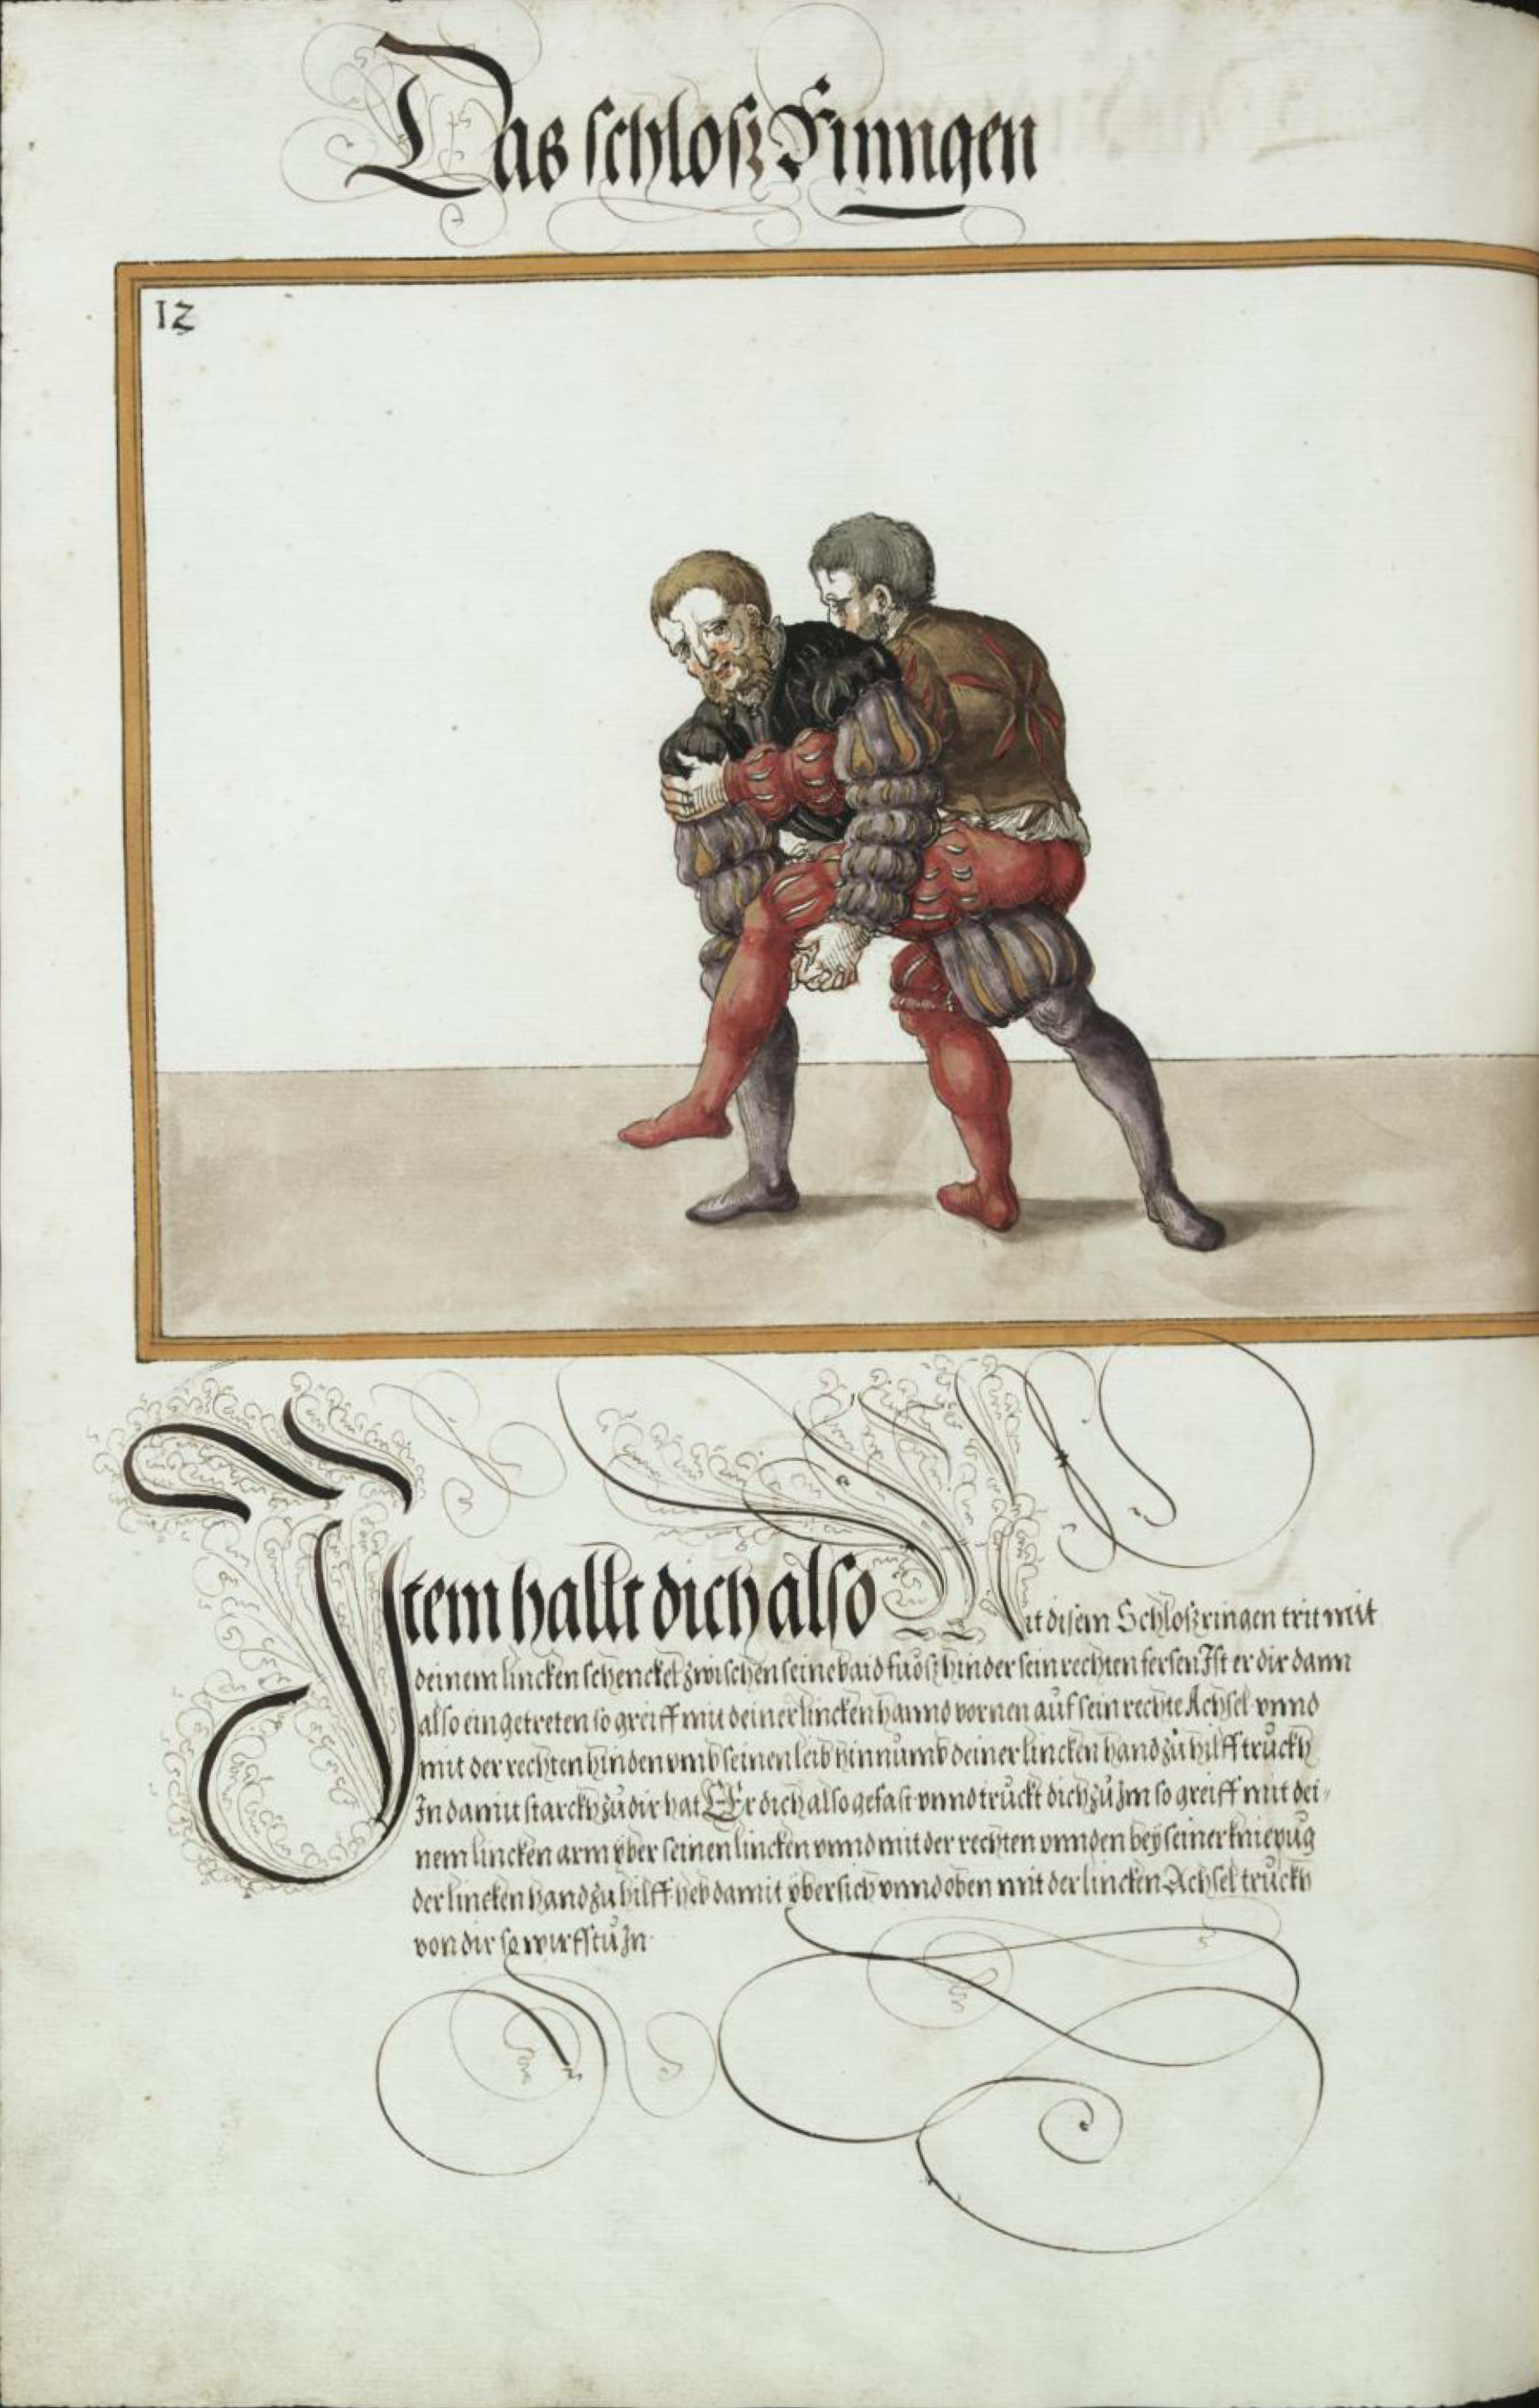 Das schlosz Ringen
12
Item hallt dich also Mit disem Schloszringen trit mit
deinem lincken schenckel zwischen seine baid fuosz hinder sein rechten fersen Ist er dir dann
also eingetreten so greiff mit deiner lincken hannd vornen auf sein rechte Achsel vnnd
mit der rechten hinden vmb seinen leib hinnumb deiner lincken hand zu hilff truckh
In damit starckh zu dir hat Er dich also gefast vnnd truckt dich zu Im so greiff mit dei-
nem lincken arm yber seinen lincken vnnd mit der rechten vnnden bey seiner kniepug
der lincken hand zu hilff heb damit ybersich vnnd oben mit der lincken Achsel truckh
von dir so wirfstu In